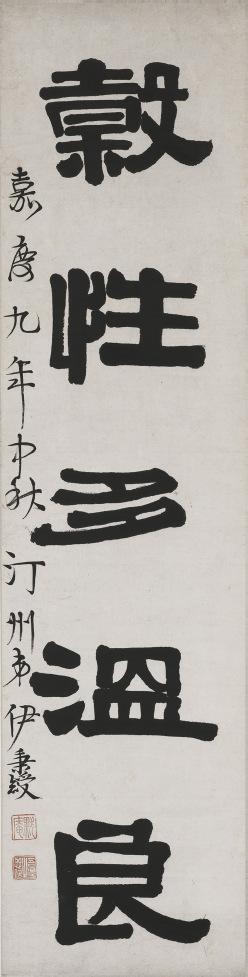 穀性多溫良
嘉慶九年中秋汀州弟伊秉綬